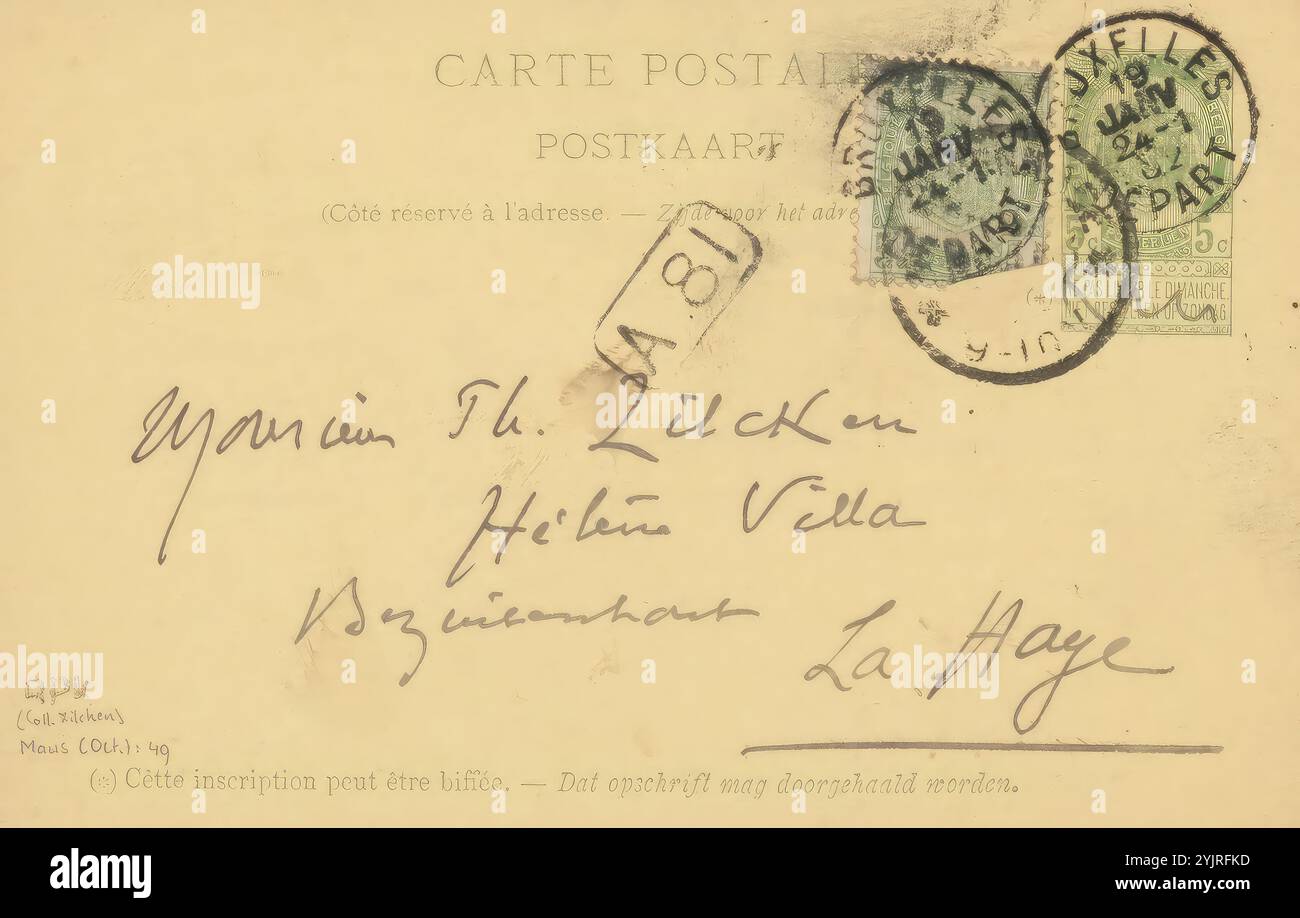 CARTE POSTALE
POSTKAART
(Côté réservé à l'adresse. — Zijde voor het adre
BRUXELLES
19
JANV
24-1
DEPART
BRUXELLES
19
JANV
24-1
DEPART
5c 5c
LE DIMANCHE
A.81
Monsieur Th. Zilcken
Hélène Villa
Bezuitenhout
La Haye
(Coll. Zilcken)
Maus (Oct.): 49
(*) Cette inscription peut être biffée. — Dat opschrift mag doorgehaald worden.
alamy
Image ID: 2YJRFKD
www.alamy.com